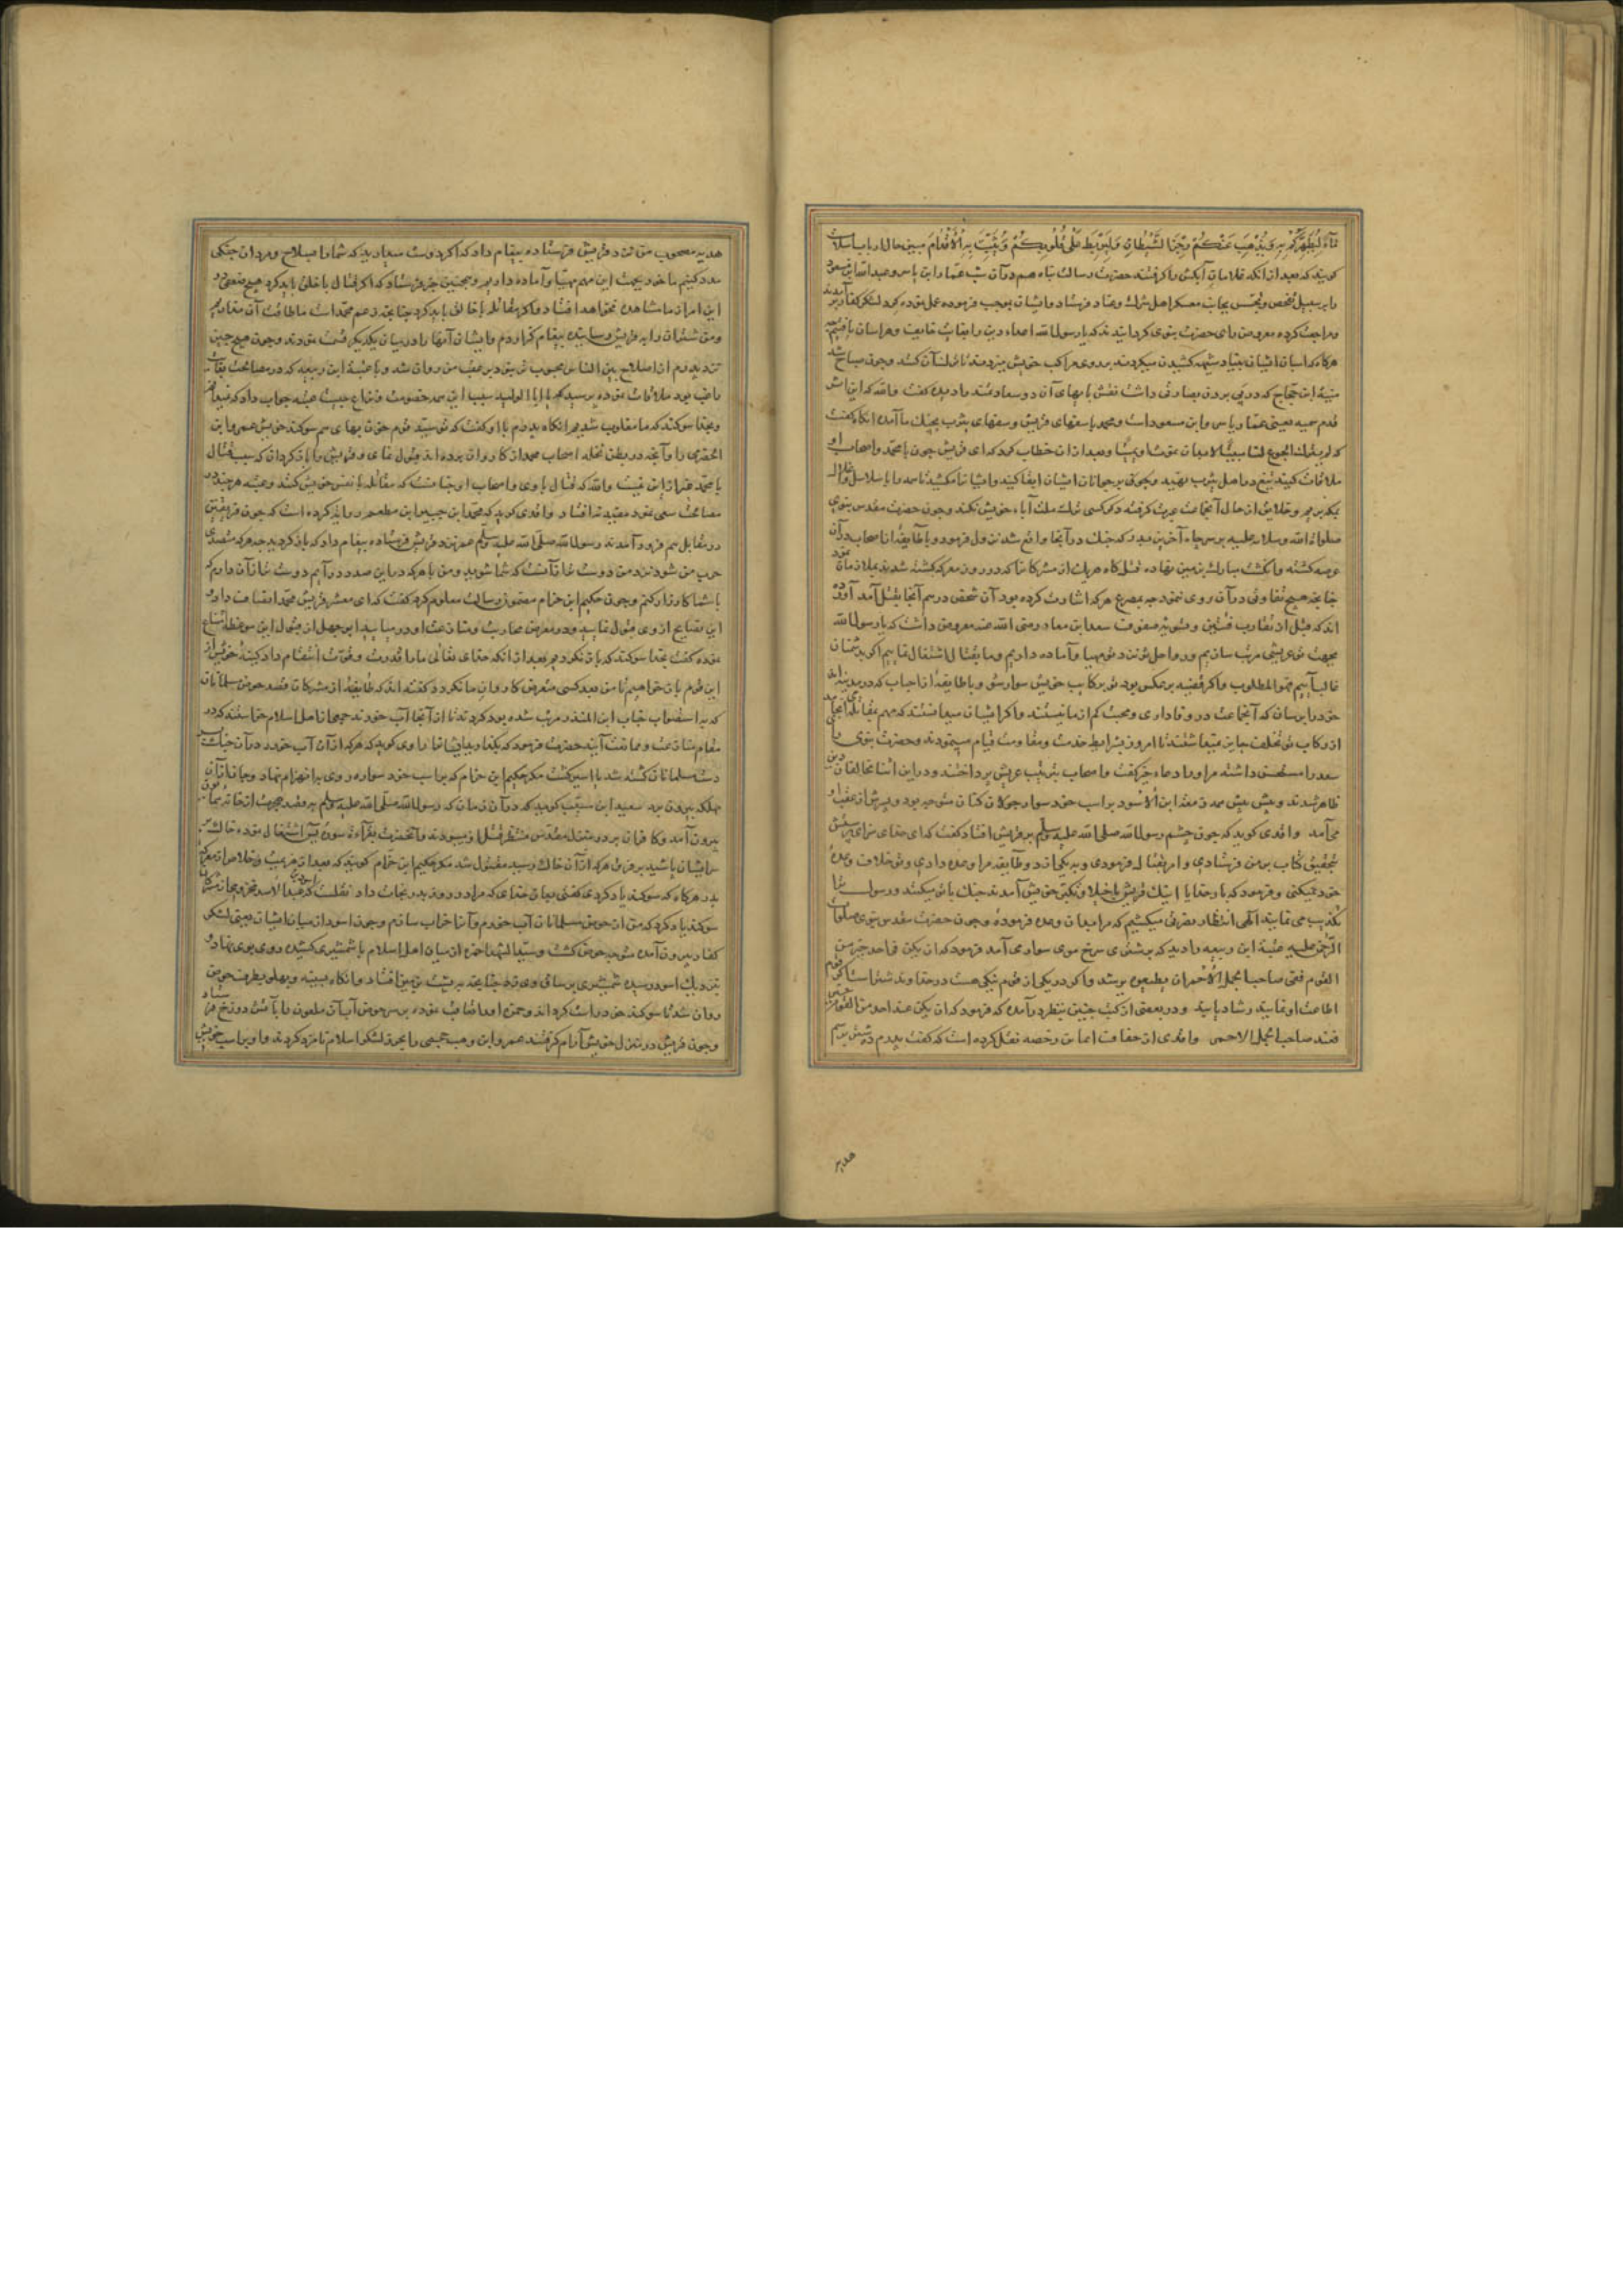 ماء لِيُطَهِّرَكُمْ بِهِ وَيُذْهِبَ عَنْكُمْ رِجْزَ الشَّيْطَانِ وَلِيَرْبِطَ عَلَى قُلُوبِكُمْ وَيُثَبِّتَ بِهِ الْأَقْدَامَ مبین حال ارباب
کویند که بعد از انکه غلامان آبکش را کرفتند حضرت رسالت پناه هم در آن شب عمار ابن یاسر و عبدالله ابن مسعود
را بر سبیل تفحص و تجسس بجانب معسکر اهل شرک و عناد فرستاد و ایشان بموجب فرموده عمل نموده کرد لشکر کفار برآمدند
و مراجعت کرده معروض رای حضرت نبوی کردانیدند که یا رسول الله اعداء دین را بغایت خایف و هراسان یافتیم چه
هرکاه که اسبان ایشان بنیاد شیهه کشیدن میکردند بر روی مراکب خویش میزدند تا ترک آن کنند و چون صباح شد
منبه ابن حجاج که در پی بردن مهارتی داشت نقش پایهای آن دو سعادتمند را دیده کفت والله که این اثر
قدم سمیه یعنی عمار یاسر و ابن مسعود است و محمد با سفهای قریش و سفهای یثرب بجنک ما آمده انکاه کفت
که لم یترک الجوع لنا مبیتا لا بد ان نموت او یمیتا و بعد از ان خطاب کرد که ای قریش چون با محمد و اصحاب او
ملاقات کنید تیغ در اهل یثرب نهید و بجوانان ایشان ابقا کنید و ایشان را مکشید تا همه را با سلاسل و اغلال
بمکه بریم و خلایق از حال آنجماعت عبرت کرفته دیکر کسی ترک ملت آباء خویش نکند و چون حضرت مقدس نبوی
صلوات الله و سلامه علیه بر سر چاه آخرین بدر که جنک در آنجا واقع شد نزول فرمود و با طایفه از اصحاب در آن
عرصه کشته و انکشت مبارک بر زمین نهاده قتلکاه هریک از مشرکان را که در روز معرکه کشته شدند بملازمان نمود
چنانچه هیچ تفاوتی در آن روی ننمود چه بمصرع هرکه اشارت کرده بود آن شخص در هم آنجا بقتل آمد آورده
اند که قبل از تقارب فئتین و تسویه صفوف سعد ابن معاذ رضی الله عنه معروض داشت که یا رسول الله
بجهت تو عریشی مرتب سازیم و رواحل تو نزد تو مهیا و آماده داریم و ما بقتال اشتغال نماییم اکر بر دشمنان
غالب آییم فهو المطلوب و اکر قضیه بر عکس بود تو بر رکایب خویش سوار شو و با طایفه از احباب که در مدینه اند
خود را برسان که آنجماعت در وفاداری و محبت کم از ما نیستند و اکر ایشان میدانستند که مهم بمقاتله می انجامد
از رکاب تو تخلف جایز نمیداشتند تا امروز بشرایط خدمت و مقاومت قیام مینمودند و حضرت نبوی رای
سعد را مستحسن داشته مر او را دعاء خیر کفت و اصحاب بترتیب عریش پرداختند و در این اثنا مخالفان دین
ظاهر شدند و پیش پیش همه زمعة ابن الاسود بر اسب خود سوار جولان کنان متوجه بود و پسرش از عقب او
می آمد واقدی کوید که چون چشم رسول الله صلی الله علیه وسلم بر قریش افتاد کفت که ای خدای سزای پرستش
بتحقیق کتاب بر من فرستادی و امر بقتال فرمودی و به یکی از دو طایفه مرا وعده دادی و تو خلاف وعده
خود نمیکنی و فرمود که بار خدایا اینک قریش با خیلا و تکبر خویش آمدند جنک با تو میکنند و رسول ترا
تکذیب می نمایند الهی انتظار نصرتی میکشیم که مرا بدان وعده فرموده و چون حضرت مقدس نبوی صلوات
الرحمن علیه عتبة ابن ربیعه را دید که بر شتری سرخ موی سوار می آمد فرمود که ان یکن فی احد خیر من
القوم ففی صاحب الجمل الاحمر ان یطیعوه یرشدوا اکر در یکی از قوم نیکی هست در خداوند شتر است اکر قوم
اطاعت او نمایند رشاد یابند و در بعضی از کتب چنین بنظر در آمده که فرمود که ان یکن عند احد من القوم خیر
فعند صاحب الجمل الاحمر واقدی از خفاف ابن ایما بن رخصه نقل کرده است که کفت پدرم ده شتر برسم
هدیه
هدیه مصحوب من نزد قریش فرستاده پیغام داد که اکر دوست میدارید که شما را بسلاح و مردان جنکی
مدد کنیم ما خود بجهت این مهم مهیا و آماده داریم و همچنین خبر فرستاد که اکر قتال با خلق باید کرد هیچ ضعفی در
این امر از ما مشاهده نخواهد افتاد و اکر مقاتله با خالق باید کرد چنانچه زعم محمد است ما طاقت آن نداریم
و من شتران را به قریش رسانیده پیغام کزاردم و ایشان آنها را در میان یکدیکر قسمت نمودند و چون هیچ چیز
نزد پدرم از اصلاح بین الناس محبوب تر نبود بر عقب من روان شد و با عتبة ابن ربیعه که در مصالحت بغایت
راغب بود ملاقات نموده پرسید که یا ابا الولید سبب این همه خصومت و نزاع چیست عتبه جواب داد که نمیدانم
و بخدا سوکند که ما مغلوب شدیم انکاه پدرم با او کفت که تو سید قوم خون بهای هم سوکند خویش عمرو ابن
الحضرمی را و آنچه در بطن نخله اصحاب محمد از کاروان برده اند قبول نمای و قریش را باز کردان که سبب قتال
با محمد غیر از این نیست والله که قتال با وی و اصحاب او چنانست که مقاتله با نفس خویش کنند و عتبه هرچند در
مصالحت سعی نمود مفید نه افتاد واقدی کوید که محمد ابن جبیر ابن مطعم روایت کرده است که چون فریقین
در مقابل هم فرود آمدند رسول الله صلی الله علیه وسلم عمر را نزد قریش فرستاده پیغام داد که باز کردید چه هرکه متصدی
حرب من شود نزد من دوست تر از آنست که شما شوید و من با هرکه در این صدد در آیم دوست تر از آن دارم که
با شما کارزار کنم و چون حکیم ابن حزام مضمون رسالت معلوم کرد کفت که ای معشر قریش محمد انصاف داد
این نصایح از وی قبول نمایید و در معرض محاربت و منازعت او در میایید ابوجهل از قبول این موعظه امتناع
نموده کفت بخدا سوکند که باز نکردیم بعد از انکه خدای تعالی ما را قدرت و قوت انتقام داد کینه خویش از
این قوم باز خواهیم تا من بعد کسی متعرض کاروان ما نکردد کفته اند که طایفه از مشرکان قصد حوض مسلمانان
که به استصواب حباب ابن المنذر مرتب شده بود کردند تا از آنجا آب خورند جمعی از اهل اسلام خواستند که در
مقام منازعت و ممانعت آیند حضرت فرمود که بگذارید ایشان را راوی کوید که هرکه از آن آب خورد در آن جنک
دست مسلمانان کشته شد یا اسیر کشت مکر حکیم ابن حزام که بر اسب خود سواره روی به انهزام نهاد و جان از آن
مهلکه بیرون برد سعید ابن مسیب کوید که در آن زمان که رسول الله صلی الله علیه وسلم به قصد هجرت از خانه
بیرون آمد و کافران بر در منزل مقدس منتظر قتل او میبودند و آنحضرت بقراءة سوره یس اشتغال نموده خاک بر
سر ایشان پاشید بر فرق هرکه از آن خاک رسید مقتول شد مکر حکیم ابن حزام کویند که بعد از هزیمت و خلاص از معرکه
بدر هرکاه که سوکند یاد کردی کفتی بدان خدای که مرا در روز بدر نجات داد نقلست که عبد الاسد مخزومی
سوکند یاد کرد که من از حوض مسلمانان آب خورم و آنرا خراب سازم و چون اسود از میان ایشان یعنی لشکر
کفار بیرون آمده متوجه حوض کشت و سید الشهدا حمزه از میان اهل اسلام با شمشیری کشیده روی بوی نهاد و
نزدیک اسود رسیده شمشیری بر ساق وی زد چنانچه به پشت بر زمین افتاد و انکاه بسینه و پهلو بطرف حوض
روان شد تا سوکند خود راست کرداند و حمزه او را تعاقب نموده بر سر حوض آب آن ملعون را بآتش دوزخ فرستاد
و چون قریش در منزل خویش آرام کرفتند عمرو ابن وهب جمحی را بحزر لشکر اسلام نامزد کردند و او بر اسب خویش